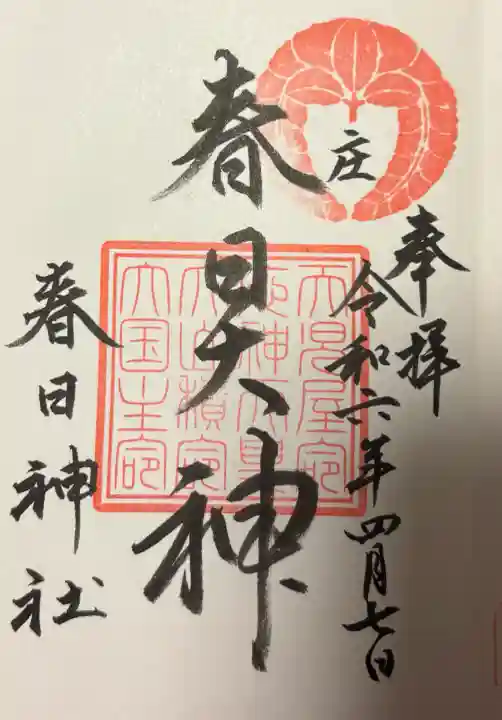 奉拝
令和六年四月七日
庄
春日大神
天児屋命
応神天皇
大山積命
大国主命
春日神社